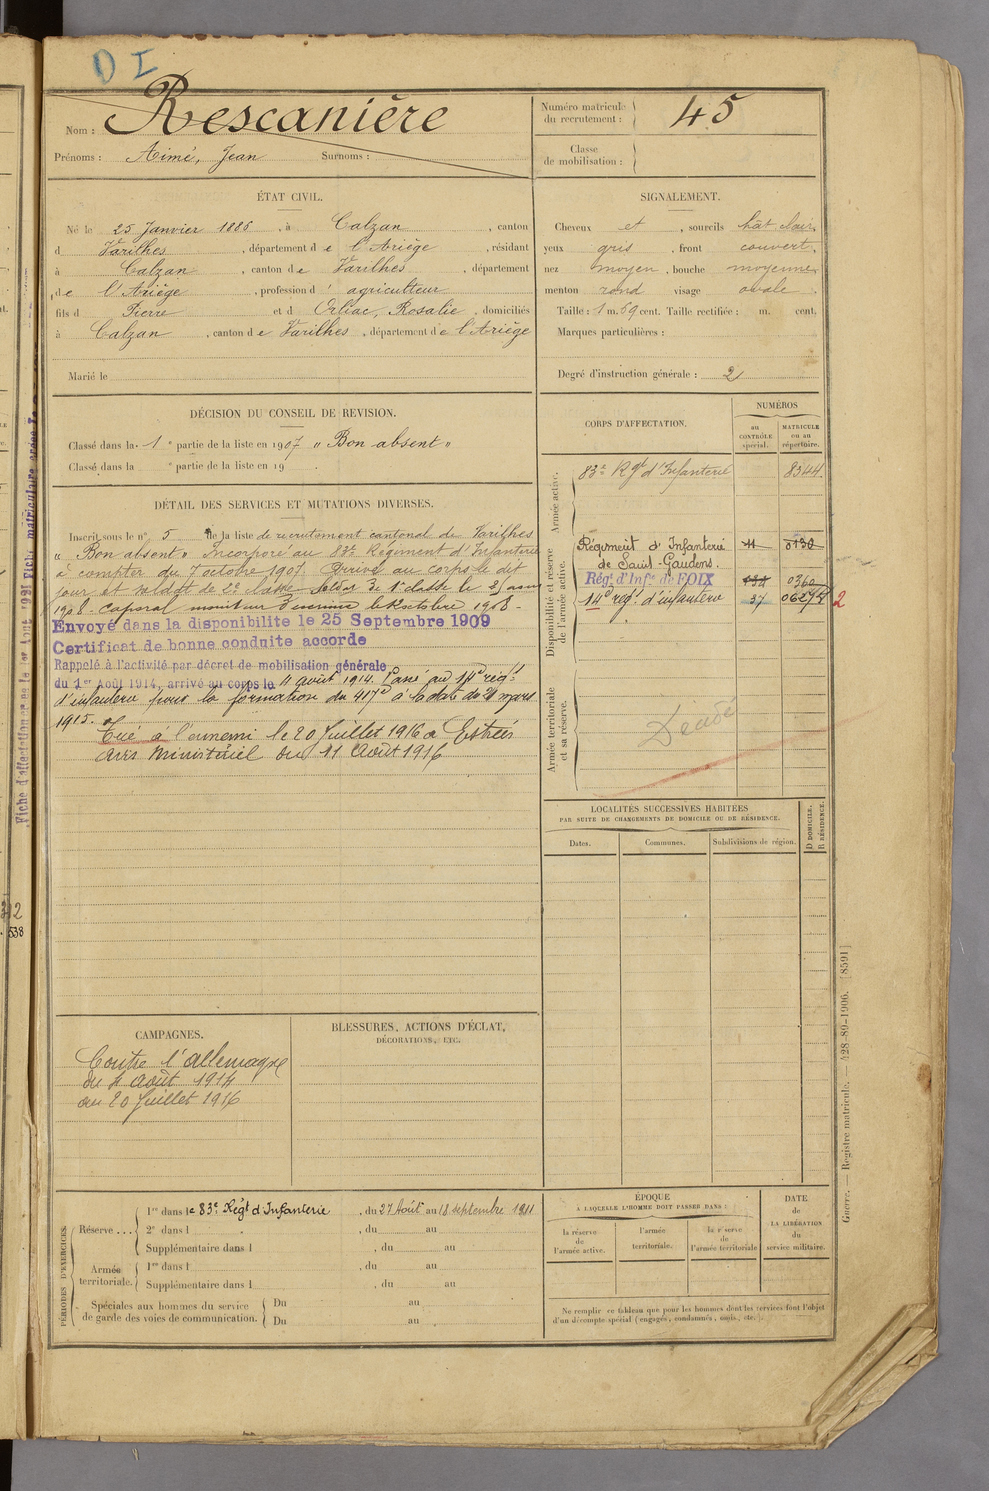 D I
Nom : Rescanière
Prénoms : Aimé, Jean Surnoms :
Numéro matricule du recrutement : 45
Classe de mobilisation :
ÉTAT CIVIL.
Né le 25 Janvier 1886, à Calzan, canton
d Varilhes, département de l'Ariège, résidant
à Calzan, canton de Varilhes, département
de l'Ariège, profession d' agriculteur
fils d Pierre et d Orliac, Rosalie, domiciliés
à Calzan, canton de Varilhes, département de l'Ariège
Marié le
SIGNALEMENT.
Cheveux et, sourcils chât clair,
yeux gris, front couvert,
nez moyen, bouche moyenne,
menton rond visage ovale.
Taille : 1 m. 59 cent. Taille rectifiée : m. cent.
Marques particulières :
Degré d'instruction générale : 2
DÉCISION DU CONSEIL DE REVISION.
Classé dans la 1e partie de la liste en 1907 " Bon absent "
Classé dans la e partie de la liste en 19 .
DÉTAIL DES SERVICES ET MUTATIONS DIVERSES.
Inscrit sous le n° 5 de la liste de recrutement cantonal de Varilhes
" Bon absent " Incorporé au 83e Régiment d'Infanterie
à compter du 7 octobre 1907. Arrivé au corps le dit
jour et soldat de 2e classe Soldat de 1e classe le 25
1908. Caporal le 8 octobre 1908 -
Envoyé dans la disponibilite le 25 Septembre 1909
Certificat de bonne conduite accorde
Rappelé à l'activité par décret de mobilisation générale
du 1er Août 1914, arrivé au corps le 4 août 1914. Passé au 14e régt
d'infanterie pour la formation du 417e à la date du 21 mars
1915.
Tué à l'ennemi le 20 Juillet 1916 à Estrées
avis Ministériel du 11 Août 1916
CORPS D'AFFECTATION.
NUMÉROS
au CONTRÔLE spécial.
MATRICULE ou au répertoire.
Armée active.
83e Rgt d'Infanterie 8344
Disponibilité et réserve de l'armée active.
Régiment d'Infanterie 11 0130
de Saint-Gaudens.
Régt d'Infie de FOIX 0360
14e régt d'infanterie 37 06274 2
Armée territoriale et sa réserve.
Décédé
LOCALITÉS SUCCESSIVES HABITÉES
PAR SUITE DE CHANGEMENTS DE DOMICILE OU DE RÉSIDENCE.
Dates. Communes. Subdivisions de région. D DOMICILE. R RÉSIDENCE.
CAMPAGNES.
Contre l'allemagne
du 4 Août 1914
au 20 Juillet 1916
BLESSURES, ACTIONS D'ÉCLAT,
DÉCORATIONS, ETC.
PÉRIODES D'EXERCICES
Réserve ... 1re dans le 83e Régt d'Infanterie, du 27 Août au 18 septembre 1911
2e dans l , du au
Supplémentaire dans l , du au
Armée territoriale. 1re dans l , du au
Supplémentaire dans l , du au
Spéciales aux hommes du service de garde des voies de communication. Du au
Du au
ÉPOQUE
À LAQUELLE L'HOMME DOIT PASSER DANS :
la réserve de l'armée active.
l'armée territoriale.
la réserve de l'armée territoriale
DATE DE LA LIBÉRATION du service militaire.
Ne remplir ce tableau que pour les hommes dont les services font l'objet
d'un décompte spécial (engagés, condamnés, omis, etc.).
Guerre. — Registre matricule. — 428-89-1906. [8591]
538